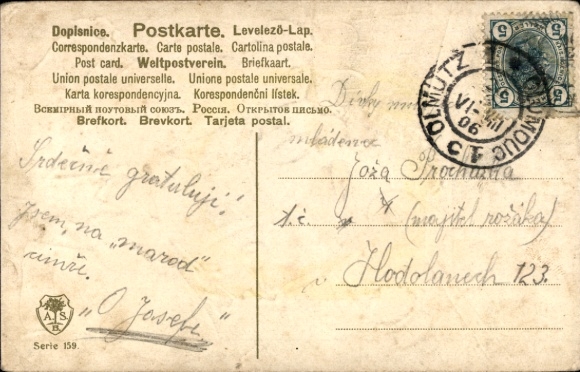 Dopisnice. Postkarte. Levelező-Lap.
Correspondenzkarte. Carte postale. Cartolina postale.
Post card. Weltpostverein. Briefkaart.
Union postale universelle. Unione postale universale.
Karta korespondencyjna. Korespondenční lístek.
Всемірный почтовый союзъ. Россія. Открытое письмо.
Brefkort. Brevkort. Tarjeta postal.
5 5
5 5
OLMÜTZ
OLOMOUC
VI
06
Srdečně gratuluji!
Jsem, na „marod"
"O Josefe"
mládenec
Joža Procházka
t.č. (majitel rožáka)
Hodolanech 123.
A S
B
Serie 159.